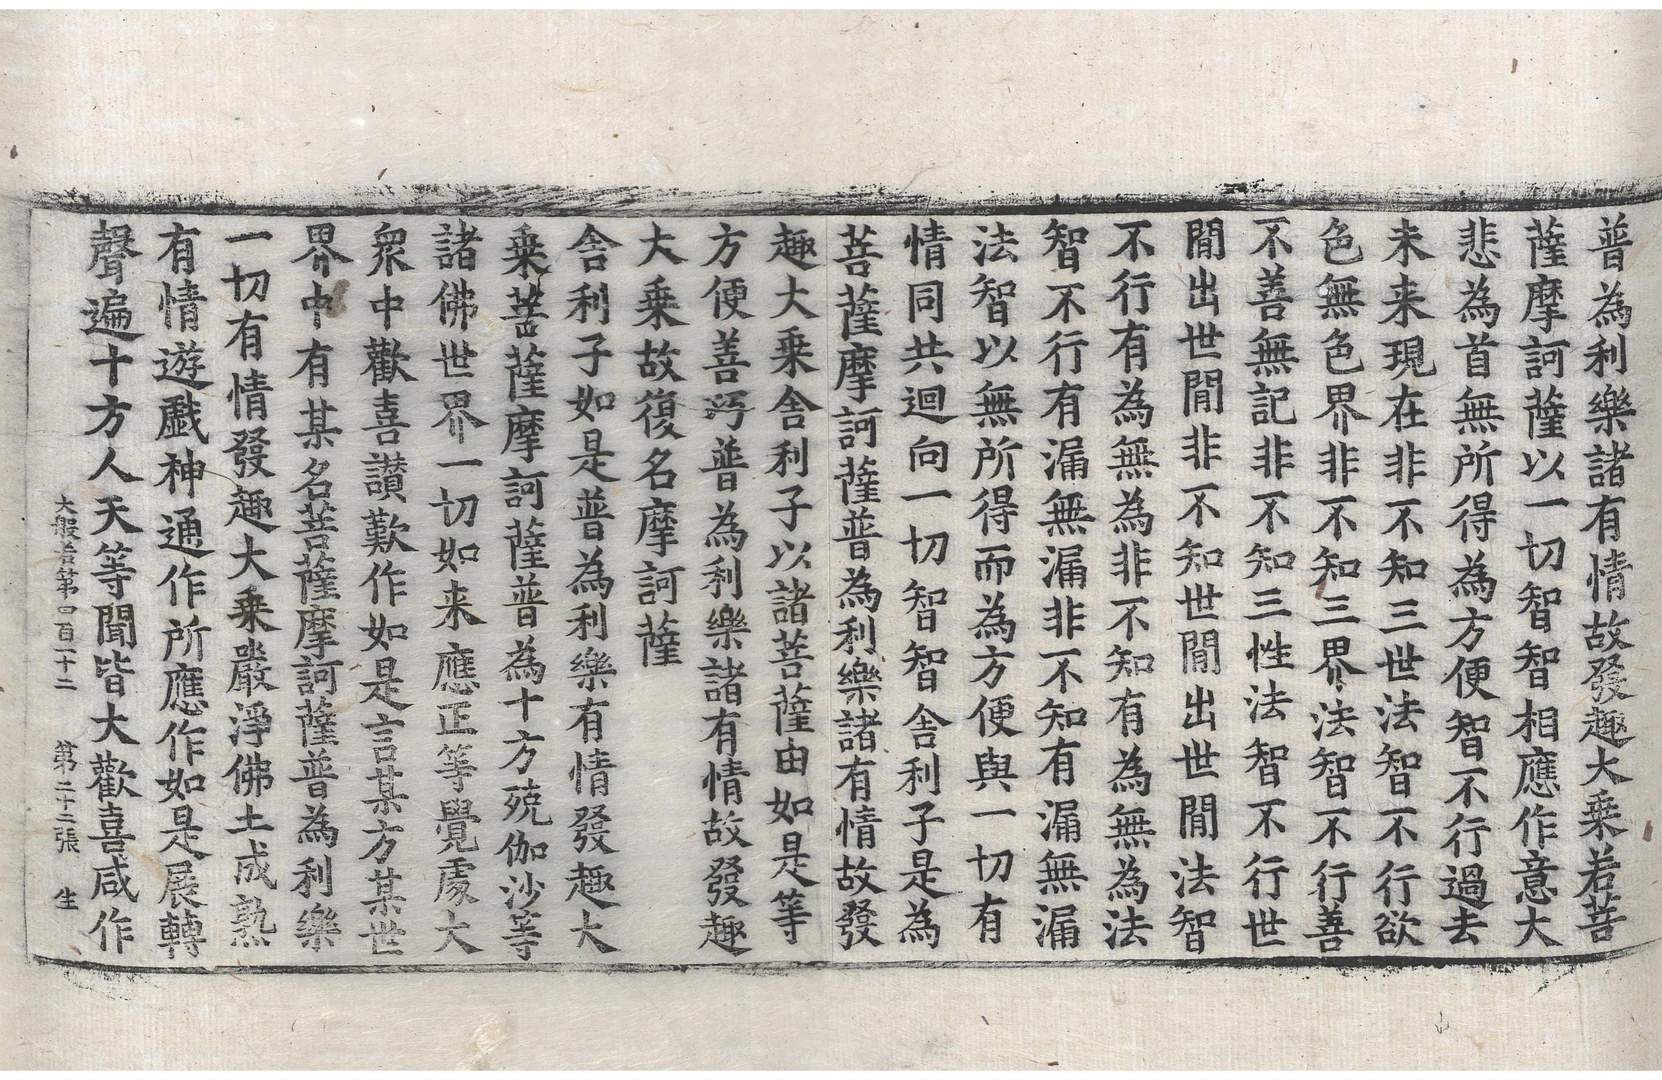 普為利樂諸有情故發趣大乘若菩
薩摩訶薩以一切智智相應作意大
悲為首無所得為方便智不行過去
未来現在非不知三世法智不行欲
色無色界非不知三界法智不行善
不善無記非不知三性法智不行世
閒出世閒非不知世閒出世閒法智
不行有為無為非不知有為無為法
智不行有漏無漏非不知有漏無漏
法智以無所得而為方便與一切有
情同共迴向一切智智舍利子是為
菩薩摩訶薩普為利樂諸有情故發
趣大乘舍利子以諸菩薩由如是等
方便善巧普為利樂諸有情故發趣
大乘故復名摩訶薩
舍利子如是普為利樂有情發趣大
乘菩薩摩訶薩普為十方殑伽沙等
諸佛世界一切如来應正等覺處大
衆中歡喜讃歎作如是言某方某世
界中有某名菩薩摩訶薩普為利樂
一切有情發趣大乘嚴淨佛土成熟
有情遊戲神通作所應作如是展轉
聲遍十方人天等聞皆大歡喜咸作
大般若第四百一十二 第二十二張 生